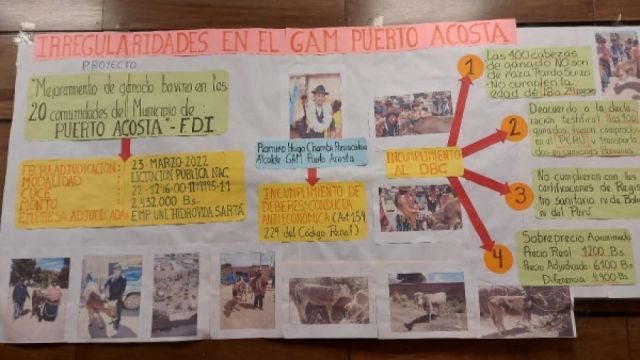 IRREGULARIDADES EN EL GAM PUERTO ACOSTA
PROYECTO
"Mejoramiento de ganado bovino en las
20 comunidades del Municipio de
PUERTO ACOSTA" - FDI
FECHA ADJUDICACION : 23 MARZO 2022
MODALIDAD : LICITACION PUBLICA NAC.
CUCE : 22-1246-00-
MONTO : 2,432.000 Bs.-
EMPRESA ADJUDICADA: EMP. UNI. HIDROVIDA SARTA
Ramiro Hugo Chambi
Alcalde - GAM Puerto Acosta
INCUMPLIMIENTO DE
DEBERES CONDUCTA
ANTIECONOMICA (Art 154
224 del Código Penal)
INCUMPLIMIENTO
AL DBC
1
Las 400 cabezas
de ganado NO son
de Raza Pardo Suizo
- No cumplen la
edad de 18 a 24
2
Deacuerdo a la decla
testifical las 400
ganados fueron comprados
en el "PERÚ" y transporta
dos en camiones
3
No cumplieron con las
certificaciones de Regis
tro sanitario ni de Bolivia
ni del Perú
4
Sobreprecio Aproximado
Precio Real 1200 Bs
Precio Adjudicado 6100 Bs
Diferencia : 4900 Bs